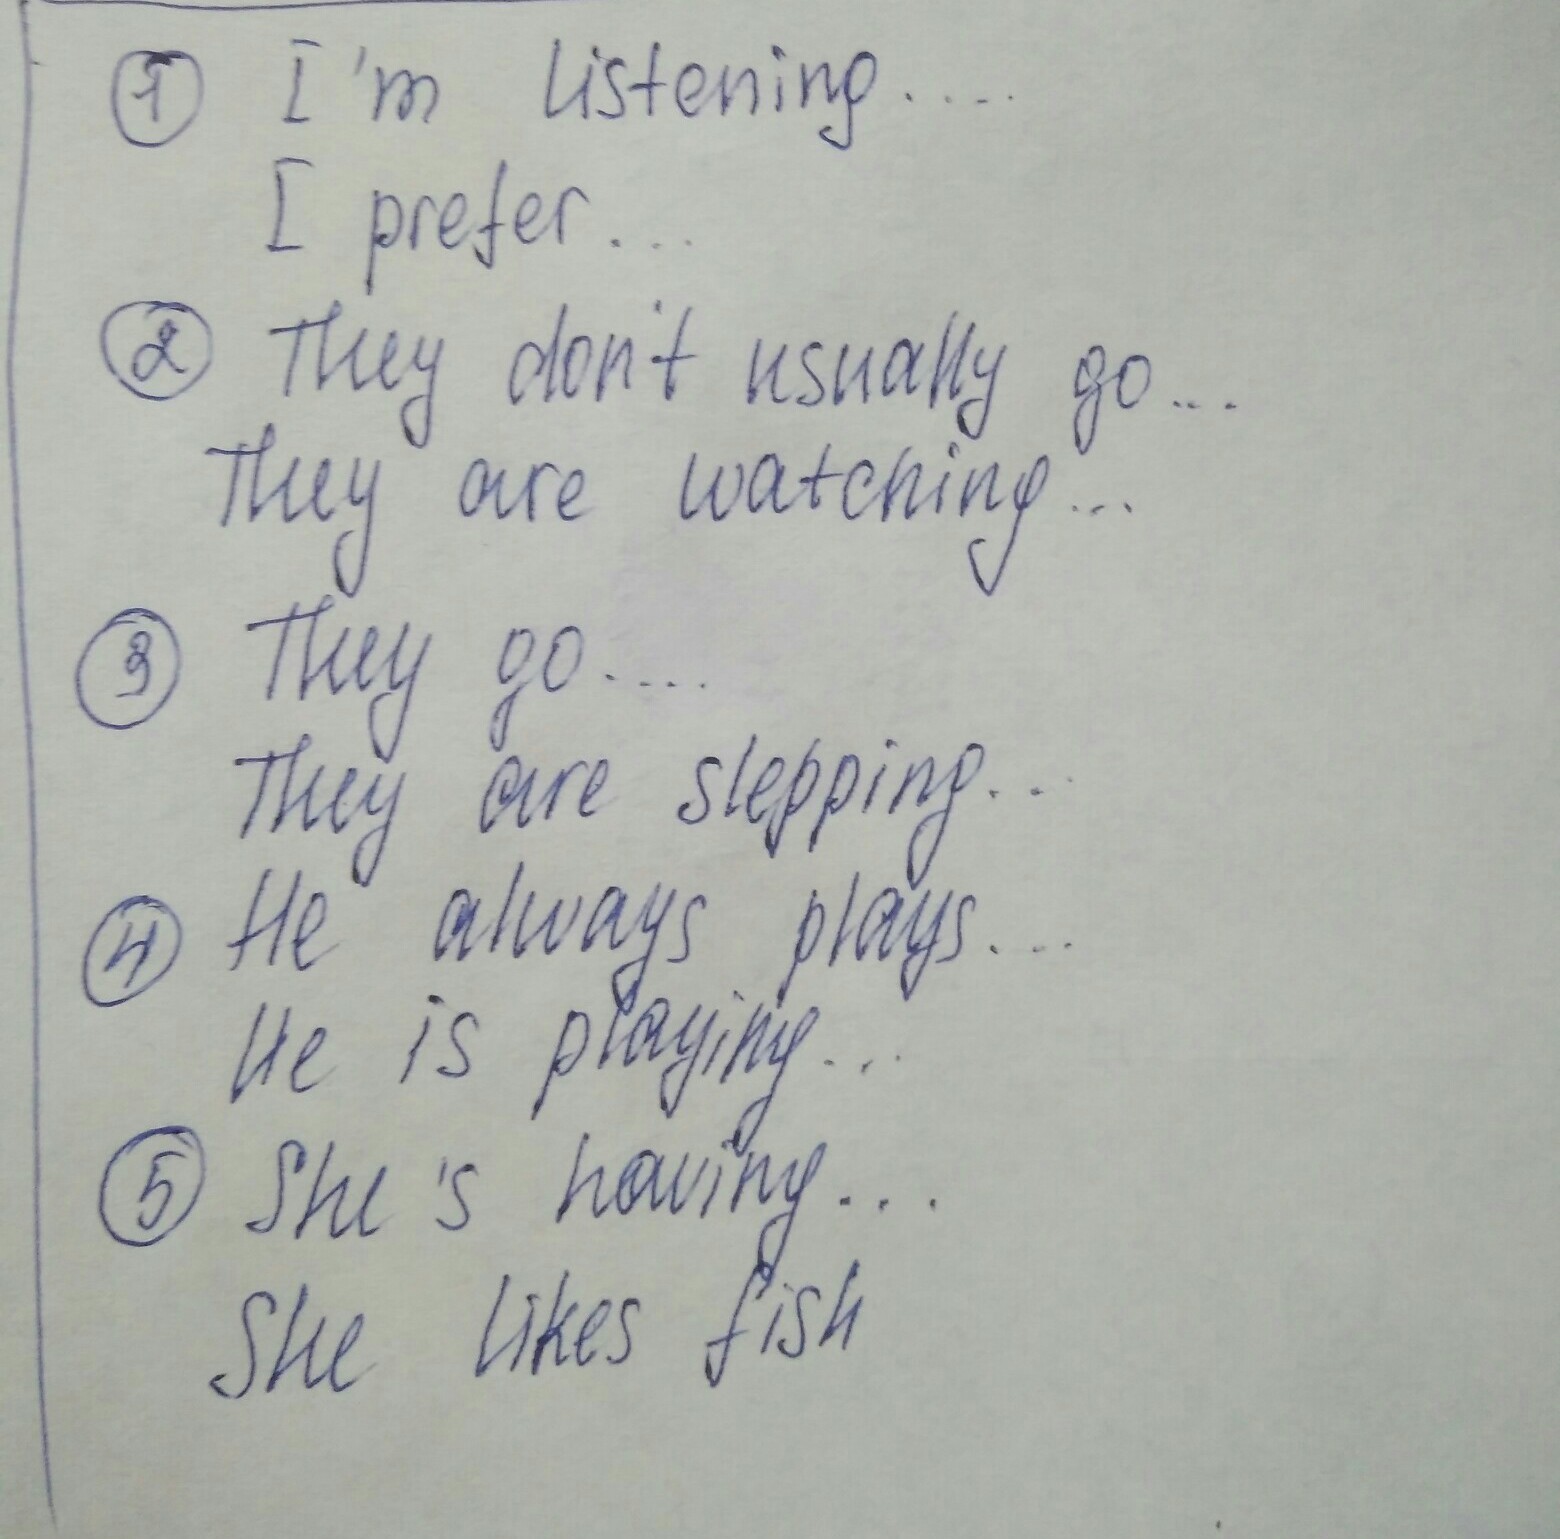 ① I'm listening....
I prefer...
② They don't usually go...
They are watching...
③ They go....
They are slepping...
④ He always plays...
He is playing...
⑤ She's having...
She likes fish